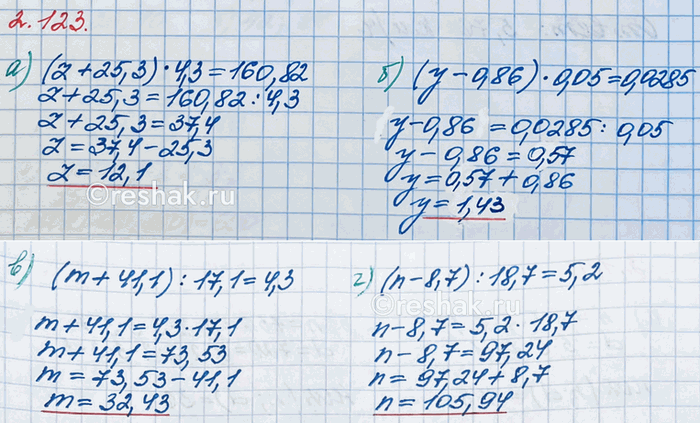 2.123.
а) (z+25,3)·4,3=160,82
z+25,3=160,82:4,3
z+25,3=37,4
z=37,4-25,3
z=12,1
©reshak.ru
б) (y-0,86)·0,05=0,0285
y-0,86=0,0285:0,05
y-0,86=0,57
y=0,57+0,86
y=1,43
в) (m+41,1):17,1=4,3
m+41,1=4,3·17,1
m+41,1=73,53
m=73,53-41,1
m=32,43
г) (n-8,7):18,7=5,2
©reshak.ru
n-8,7=5,2·18,7
n-8,7=97,24
n=97,24+8,7
n=105,94